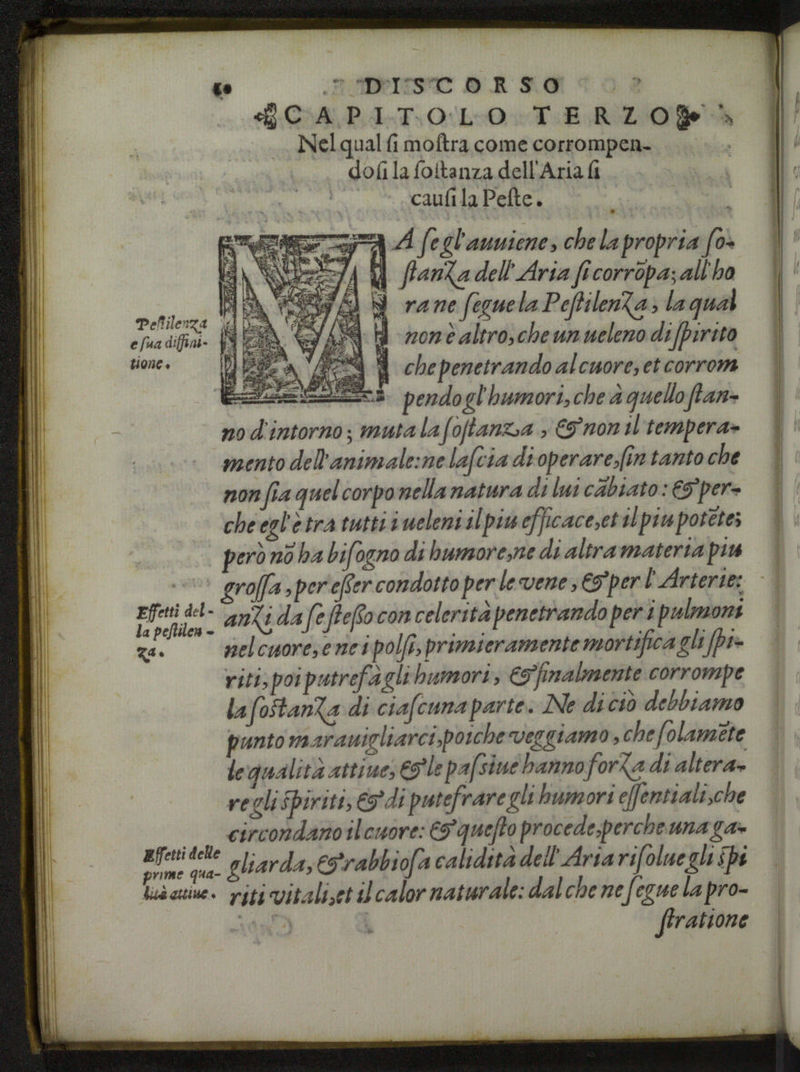 DISCORSO
CAPITOLO TERZO
Nel qual ſi moſtra come corrompen-
doſi la ſoſtanza dell'Aria ſi
cauſi la Peſte.
MA ſe gl'auuiene, che la propria ſo-
ſtanza dell'Aria ſi corrõpa; all'ho
ra ne ſegue la Peſtilenza, la qual
Peſtilenza
e ſua diffini-
tione.
non è altro, che un ueleno di ſpirito
che penetrando al cuore, et corrom
pendo gl'humori, che à quello ſtan-
no d'intorno; muta la ſoſtanza, & non il tempera-
mento dell'animale: ne laſcia di operare, ſin tanto che
non ſia quel corpo nella natura di lui cãbiato: & per-
che egl'è tra tutti i ueleni il piu efficace, et il piu potẽte;
però nõ ha biſogno di humore, ne di altra materia piu
groſſa, per eſſer condotto per le vene, & per l'Arterie:
Effetti del-
la peſtilen-
za.
anzi da ſe ſteſſo con celerità penetrando per i pulmoni
nel cuore, e ne i polſi, primieramente mortifica gli ſpi-
riti, poi putrefà gli humori, & finalmente corrompe
la ſoſtanza di ciaſcuna parte. Ne di ciò debbiamo
punto marauigliarci, poiche veggiamo, che ſolamẽte
le qualità attiue, & le paſsiue hanno forza di altera-
re gli ſpiriti, & di putefrare gli humori eſſentiali, che
circondano il cuore: & queſto procede, perche una ga-
Effetti delle
prime qua-
lità attiue.
gliarda, & rabbioſa calidità dell'Aria riſolue gli ſpi
riti vitali, et il calor naturale: dal che ne ſegue la pro-
ſtratione